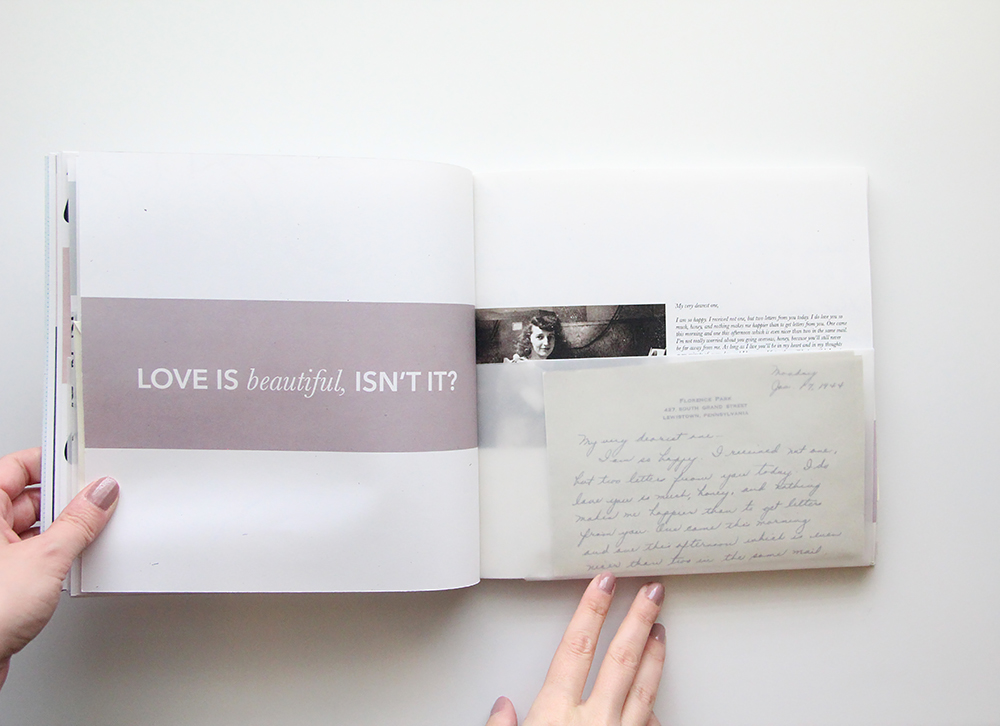 LOVE IS beautiful, ISN'T IT?
My very dearest one,
I am so happy. I received not one, but two letters from you today. I do love you so
much, honey, and nothing makes me happier than to get letters from you. One came
this morning and one this afternoon which is even nicer than two in the same mail.
I'm not really worried about you going overseas, honey, because you'll still never
be far away from me. As long as I live you'll be in my heart and in my thoughts
Monday
Jan. 17, 1944
FLORENCE PARK
427 SOUTH GRAND STREET
LEWISTOWN, PENNSYLVANIA
My very dearest one,
I am so happy. I received not one,
but two letters from you today. I do
love you so much, honey, and nothing
makes me happier than to get letters
from you. One came this morning
and one this afternoon which is even
nicer than two in the same mail.